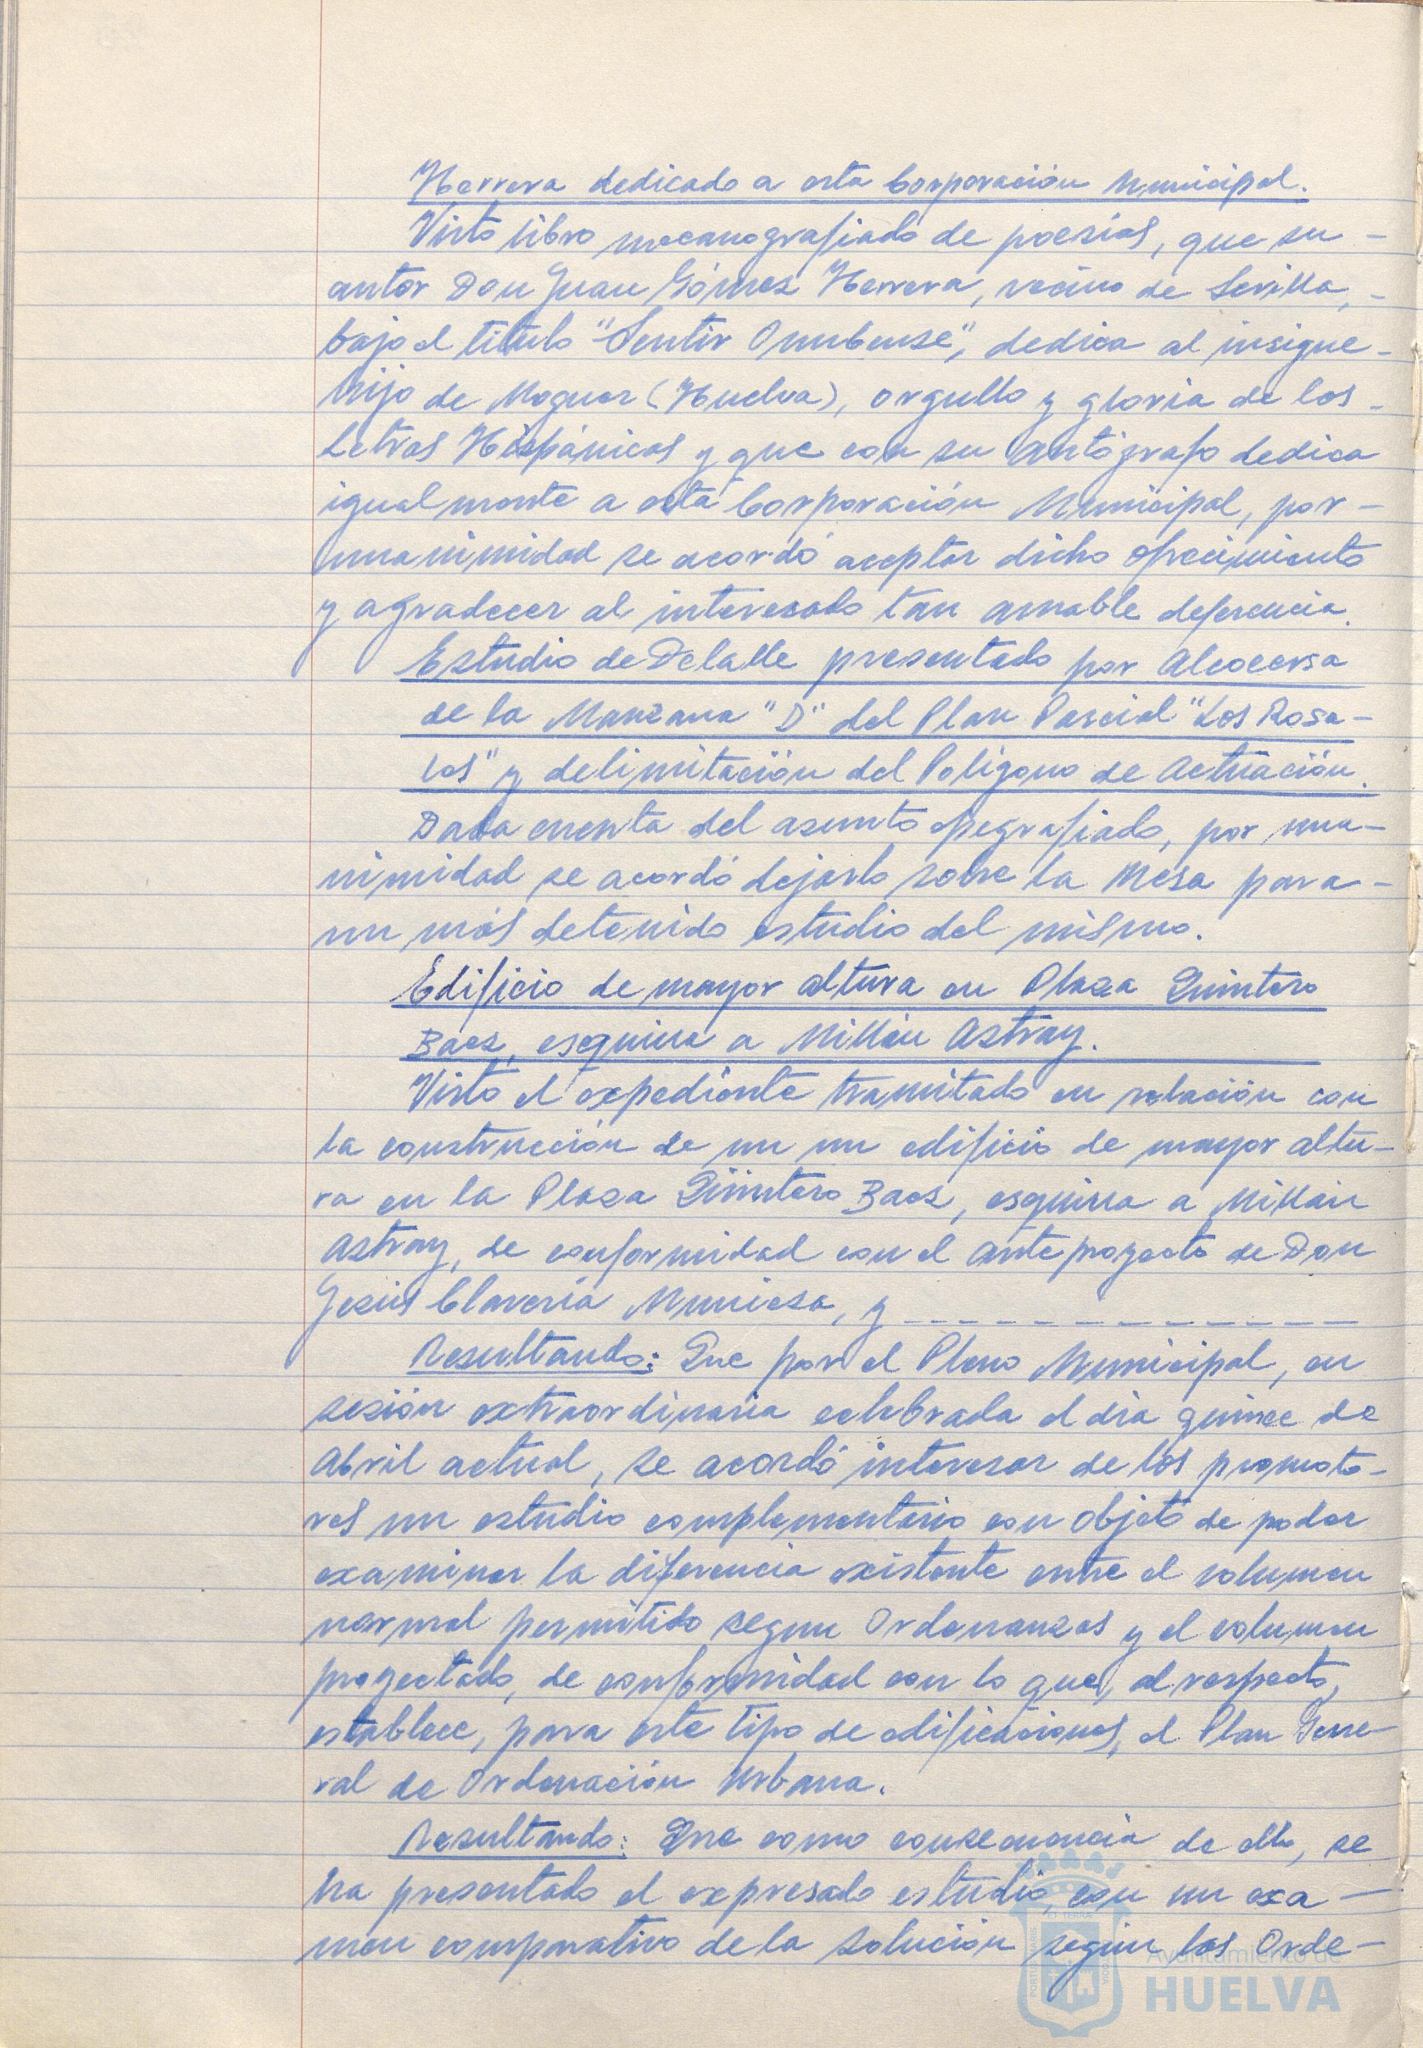 Herrera dedicado a esta Corporación Municipal.
Visto libro mecanografiado de poesías, que su -
autor Don Juan Gómez Herrera, vecino de Sevilla, -
bajo el título "Sentir Onubense", dedica al insigne -
hijo de Moguer (Huelva), orgullo y gloria de las -
Letras Hispánicas y que con su autógrafo dedica
igualmente a esta Corporación Municipal, por -
unanimidad se acordó aceptar dicho ofrecimiento
y agradecer al interesado tan amable deferencia.
Estudio de Detalle presentado por Alcocersa
de la Manzana "D" del Plan Parcial "Los Rosa-
les" y delimitación del Polígono de Actuación.
Dada cuenta del asunto epigrafiado, por una-
nimidad se acordó dejarlo sobre la Mesa para -
un más detenido estudio del mismo.
Edificio de mayor altura en Plaza Quintero
Baez, esquina a Millán Astray.
Visto el expediente tramitado en relación con
la construcción de un un edificio de mayor altu-
ra en la Plaza Quintero Baez, esquina a Millán
Astray, de conformidad con el anteproyecto de Don
Jesús Clavería Muniesa, y _ _ _ _ _ _ _ _ _ _ _ _ _ _
Resultando: Que por el Pleno Municipal, en
sesión extraordinaria celebrada el día quince de
Abril actual, se acordó interesar de los promoto-
res un estudio complementario con objeto de poder
examinar la diferencia existente entre el volumen
normal permitido segun Ordenanzas y el volumen
proyectado, de conformidad con lo que, al respecto,
establece, para este tipo de edificaciones, el Plan Gene-
ral de Ordenación Urbana.
Resultando: Que como consecuencia de ello, se
ha presentado el expresado estudio, con un exa -
men comparativo de la solución según las Orde-
Ayuntamiento de
HUELVA